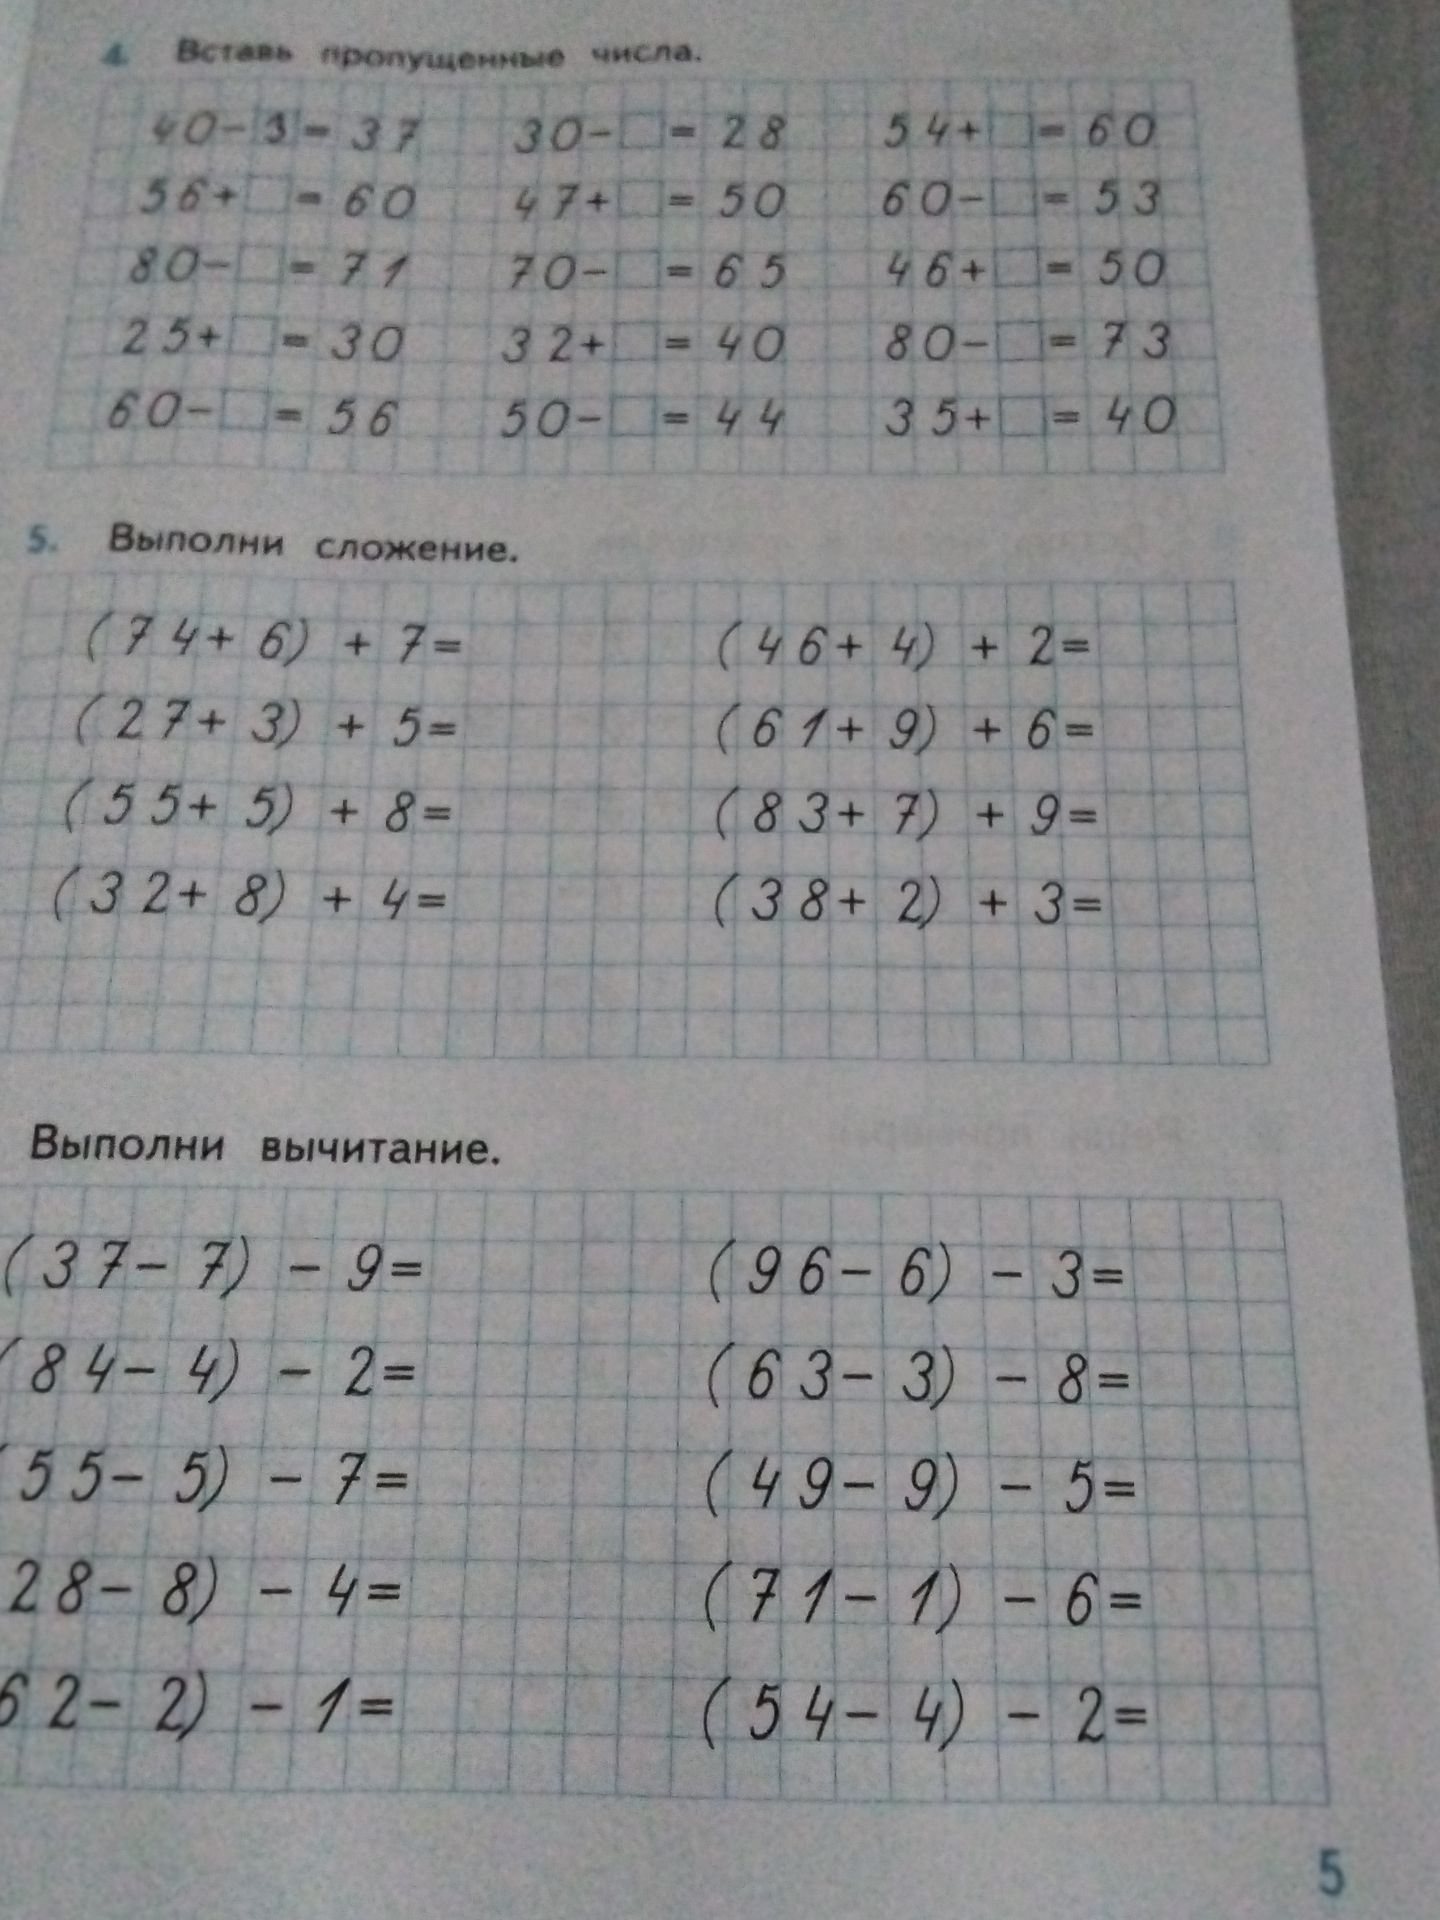 4. Вставь пропущенные числа.
40-3=37 30-□=28 54+□=60
56+□=60 47+□=50 60-□=53
80-□=71 70-□=65 46+□=50
25+□=30 32+□=40 80-□=73
60-□=56 50-□=44 35+□=40
5. Выполни сложение.
(74+ 6) + 7= (46+ 4) + 2=
(27+ 3) + 5= (61+ 9) + 6=
(55+ 5) + 8= (83+ 7) + 9=
(32+ 8) + 4= (38+ 2) + 3=
Выполни вычитание.
(37- 7) - 9= (96- 6) - 3=
(84- 4) - 2= (63- 3) - 8=
(55- 5) - 7= (49- 9) - 5=
28- 8) - 4= (71- 1) - 6=
62- 2) - 1= (54- 4) - 2=
5